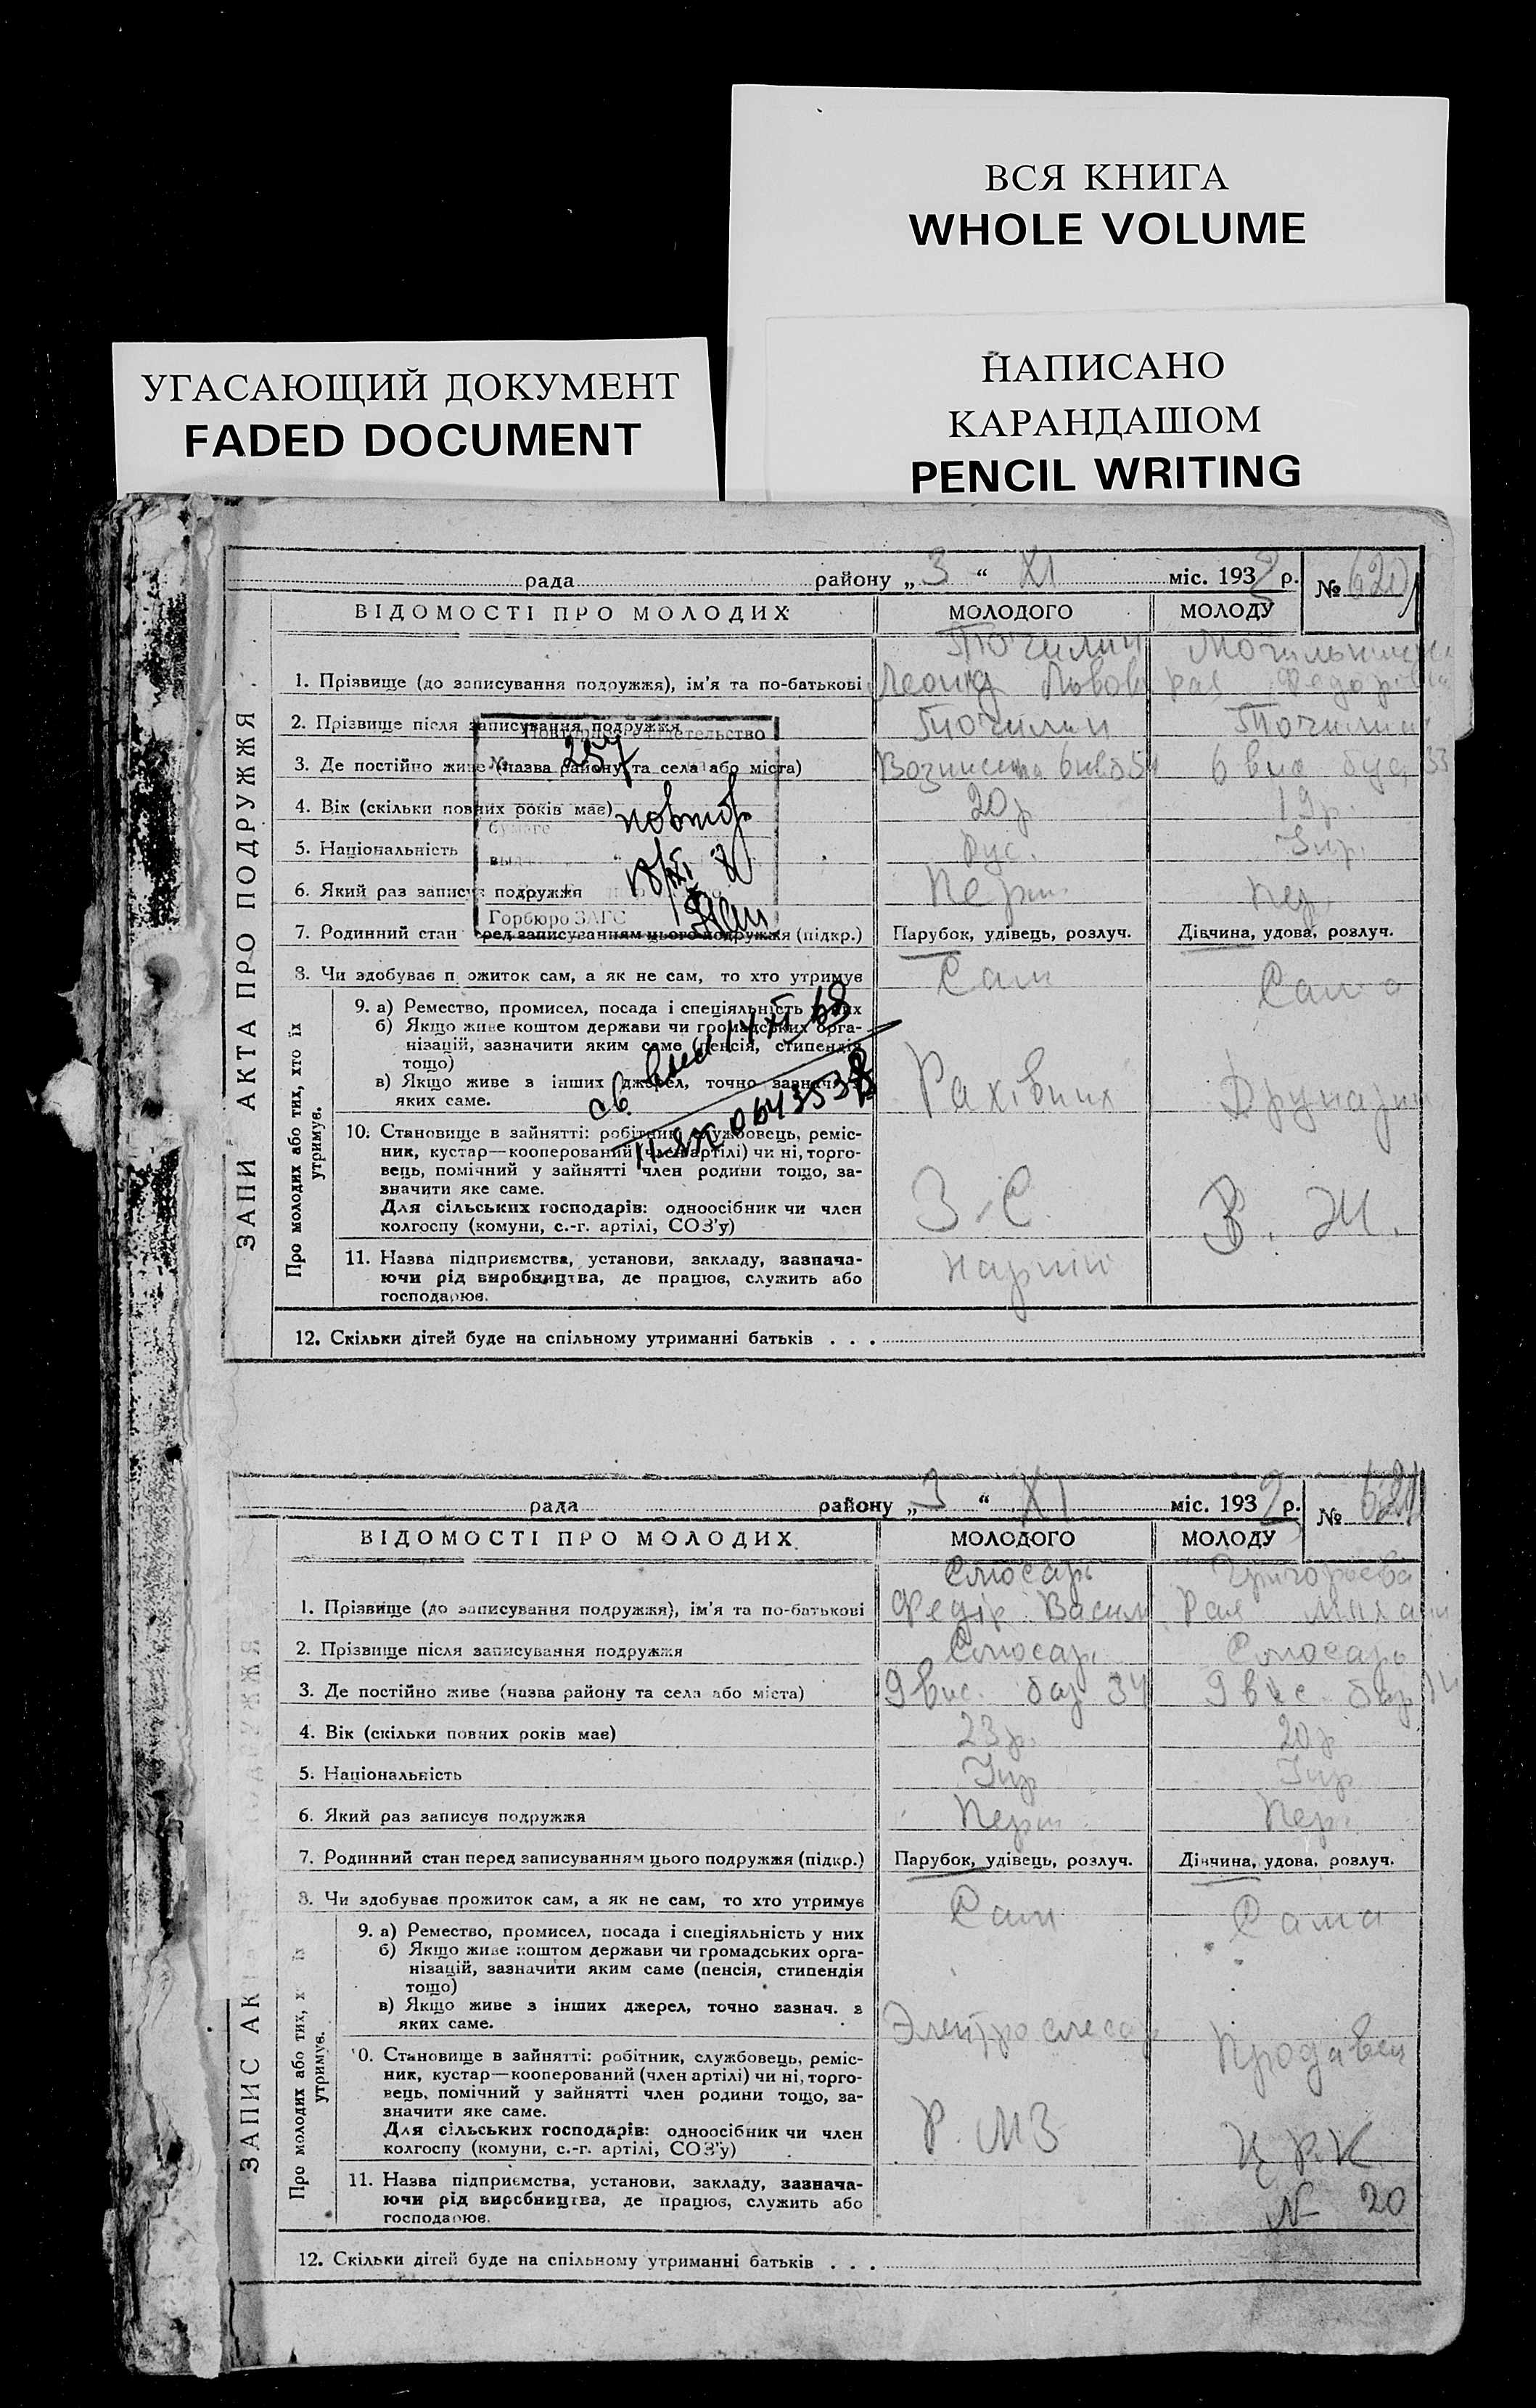 ВСЯ КНИГА
WHOLE VOLUME
УГАСАЮЩИЙ ДОКУМЕНТ
FADED DOCUMENT
НАПИСАНО
КАРАНДАШОМ
PENCIL WRITING
рада району „3“ XI міс. 1932 р. № 620
ВІДОМОСТІ ПРО МОЛОДИХ МОЛОДОГО МОЛОДУ
Точилин
1. Прізвище (до записування подружжя), ім'я та по-батькові Леонид Львов Рая Федорівна
2. Прізвище після записування подружжя Точилин Точилин
3. Де постійно живе (назва району та села або міста) 6 вис буд 33
4. Вік (скільки повних років має) 20 р 19 р.
5. Національність Рус. Укр.
6. Який раз записує подружжя Перш. Пер.
7. Родинний стан перед записуванням цього подружжя (підкр.) Парубок, удівець, розлуч. Дівчина, удова, розлуч.
8. Чи здобуває прожиток сам, а як не сам, то хто утримує Сам Сама
9. а) Ремество, промисел, посада і спеціяльність у них
б) Якщо живе коштом держави чи громадських орга-
нізацій, зазначити яким саме (пенсія, стипендія
тощо)
в) Якщо живе з інших джерел, точно зазнач. з
яких саме.
Рахівник
10. Становище в зайнятті: робітник, службовець, реміс-
ник, кустар—кооперований (член артілі) чи ні, торго-
вець, помічний у зайнятті член родини тощо, за-
значити яке саме.
Для сільських господарів: одноосібник чи член
колгоспу (комуни, с.-г. артілі, СОЗ'у)
З. С. В. Ж.
11. Назва підприємства, установи, закладу, зазнача-
ючи рід виробництва, де працює, служить або
господарює.
12. Скільки дітей буде на спільному утриманні батьків . . .
ЗАПИ АКТА ПРО ПОДРУЖЖЯ
Про молодих або тих, хто їх
утримує.
свидетельство
№ 257
повтор
бумаге
Горбюро ЗАГС
св. 14 XI 68
0643538
рада району „3“ XI міс. 1932 р. № 621
ВІДОМОСТІ ПРО МОЛОДИХ МОЛОДОГО МОЛОДУ
Слюсарь Григорьєва
1. Прізвище (до записування подружжя), ім'я та по-батькові Федір Васил Рая Михайл
2. Прізвище після записування подружжя Слюсарь Слюсарь
3. Де постійно живе (назва району та села або міста) 9 вис. 34 9 вис.
4. Вік (скільки повних років має) 23 р. 20 р
5. Національність Укр Укр
6. Який раз записує подружжя Перш. Пер.
7. Родинний стан перед записуванням цього подружжя (підкр.) Парубок, удівець, розлуч. Дівчина, удова, розлуч.
8. Чи здобуває прожиток сам, а як не сам, то хто утримує Сам Сама
9. а) Ремество, промисел, посада і спеціяльність у них
б) Якщо живе коштом держави чи громадських орга-
нізацій, зазначити яким саме (пенсія, стипендія
тощо)
в) Якщо живе з інших джерел, точно зазнач. з
яких саме.
Электрослесар Продавец
10. Становище в зайнятті: робітник, службовець, реміс-
ник, кустар—кооперований (член артілі) чи ні, торго-
вець, помічний у зайнятті член родини тощо, за-
значити яке саме.
Для сільських господарів: одноосібник чи член
колгоспу (комуни, с.-г. артілі, СОЗ'у)
Р. МЗ ЦРК
11. Назва підприємства, установи, закладу, зазнача-
ючи рід виробництва, де працює, служить або
господарює.
№ 20
12. Скільки дітей буде на спільному утриманні батьків . . .
ЗАПИС АК
Про молодих або тих, х їх
утримує.